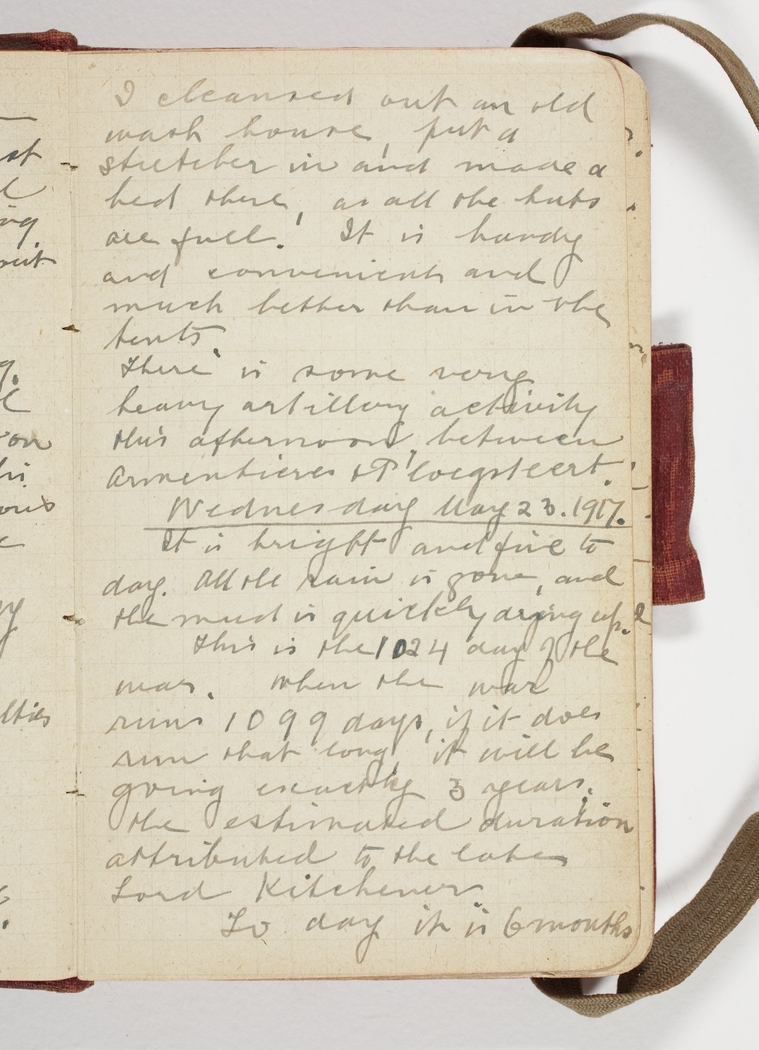 st
l
ing.
out
g.
l
on
his
ous
e
y
lties
I cleansed out an old
wash house, put a
stretcher in and made a
bed there, as all the huts
are full. It is handy
and convenient and
much better than in the
tents.
There is some very
heavy artillery activity
this afternoon, between
Armentieres & Ploegsteert.
Wednesday May 23. 1917.
It is bright and fine to
day. All the rain is gone, and
the mud is quickly drying up.
This is the 1024 day of the
war. When the war
runs 1099 days, if it does
run that long, it will be
going exactly 3 years.
the estimated duration
attributed to the late
Lord Kitchener
To day it is 6 months